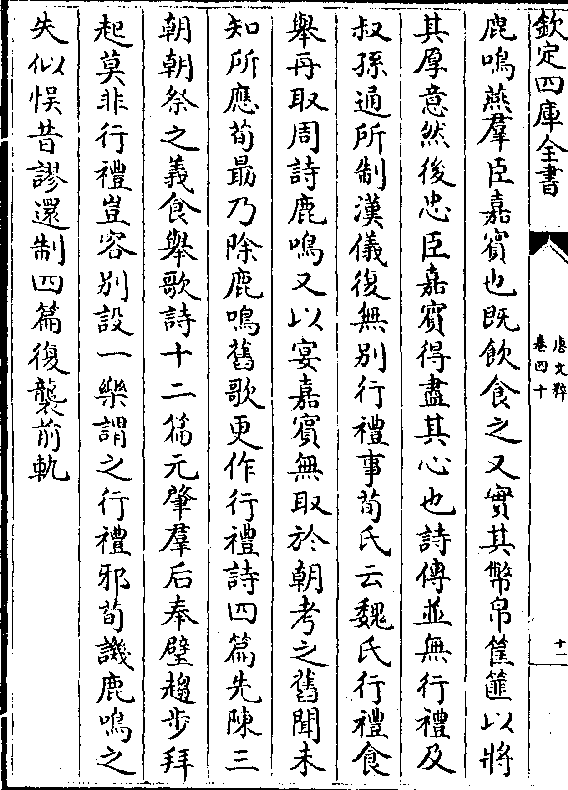 欽定四庫全書
唐文粹
卷四十
十二
鹿鳴燕羣臣嘉賓也既飲食之又實其幣帛筐篚以將
其厚意然後忠臣嘉賓得盡其心也詩傳並無行禮及
叔孫通所制漢儀復無別行禮事荀氏云魏氏行禮食
舉再取周詩鹿鳴又以宴嘉賓無取於朝考之舊聞未
知所應荀勗乃除鹿鳴舊歌更作行禮詩四篇先陳三
朝朝祭之義食舉歌詩十二篇元肇羣后奉璧趨步拜
起莫非行禮豈容別設一樂謂之行禮邪荀譏鹿鳴之
失似悞昔謬還制四篇復襲前軌